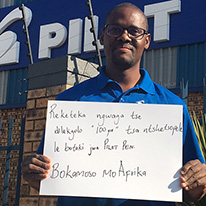 PILOT
Re keteka ngwaga tse
dilekgolo "100 yo" tsa ntshetsopele
le botaki jwa PILOT PEN
BOKAMOSO MO AFRIKA